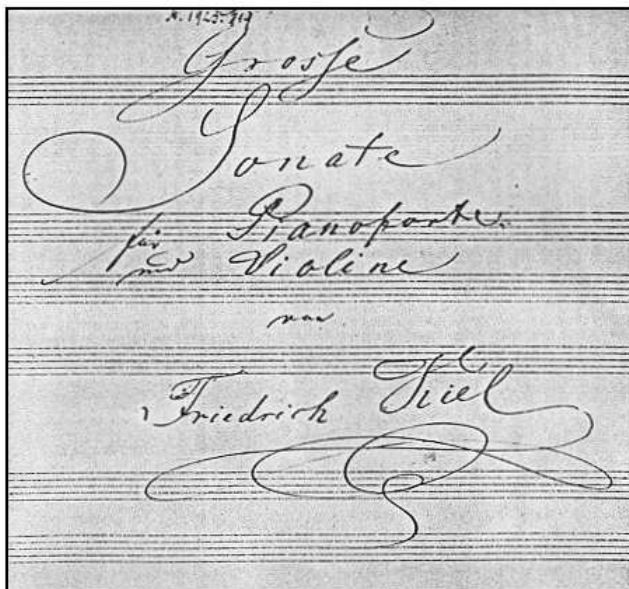 Grosse
Sonate
für Pianoforte
und Violine
von
Friedrich Kiel